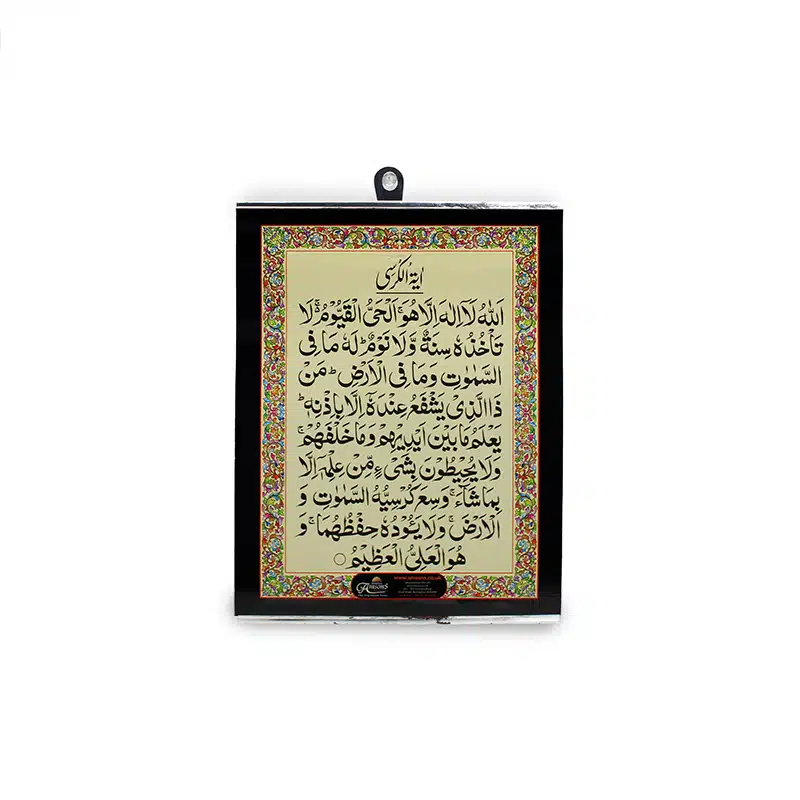 اٰیة الکرسی
اَللّٰهُ لَآ اِلٰهَ اِلَّا هُوَ ۚ اَلْحَیُّ الْقَیُّوْمُ ۬ۚ لَا
تَاْخُذُهٗ سِنَةٌ وَّلَا نَوْمٌ ؕ لَهٗ مَا فِی
السَّمٰوٰتِ وَمَا فِی الْاَرْضِ ؕ مَنْ
ذَا الَّذِیْ یَشْفَعُ عِنْدَهٗۤ اِلَّا بِاِذْنِهٖ ؕ
یَعْلَمُ مَا بَیْنَ اَیْدِیْهِمْ وَمَا خَلْفَهُمْ ۚ
وَلَا یُحِیْطُوْنَ بِشَیْءٍ مِّنْ عِلْمِهٖۤ اِلَّا
بِمَا شَآءَ ۚ وَسِعَ كُرْسِیُّهُ السَّمٰوٰتِ وَ
الْاَرْضَ ۚ وَلَا یَـُٔوْدُهٗ حِفْظُهُمَا ۚ وَ
هُوَ الْعَلِیُّ الْعَظِیْمُ ○
www.amsons.co.uk